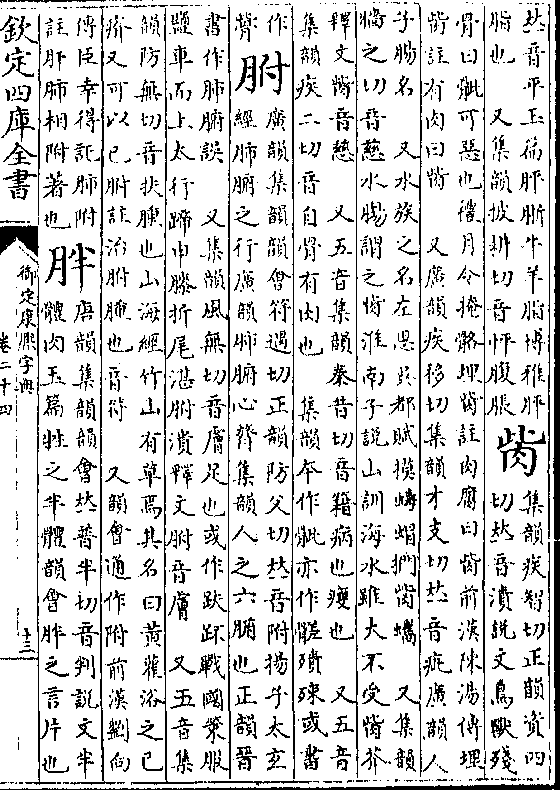 𠀤音平玉篇胓䏔牛羊脂博雅胓
脂也 又集韻披耕切音怦腹脹
胔
集韻疾智切正韻資四
切𠀤音漬說文鳥獸殘
骨曰骴可惡也禮月令掩骼埋胔註肉腐曰胔前漢陳湯傳埋
胔註有肉曰胔 又廣韻疾移切集韻才支切𠀤音疵廣韻人
子腸名 又水族之名左思吳都賦摸蝳蝐捫胔蠵 又集韻
牆之切音慈水腸謂之胔淮南子說山訓海水雖大不受胔芥
釋文胔音慈 又五音集韻秦昔切音籍病也瘦也 又五音
集韻疾二切音自骨有肉也 集韻本作骴亦作髊殨殐或書
作
胕
廣韻集韻韻會符遇切正韻防父切𠀤音附揚子太玄
經肺胕之行廣韻肺胕心膂集韻人之六腑也正韻晉
書作肺腑誤 又集韻風無切音膚足也或作趺跗戰國策服
鹽車而上太行蹄申膝折尾湛胕潰釋文胕音膚 又五音集
韻防無切音扶腫也山海經竹山有草焉其名曰黃雚浴之已
疥又可以已胕註治胕腫也音符 又韻會通作附前漢劉向
傳臣幸得託肺附
註肝肺相附著也
胖
唐韻集韻韻會𠀤普半切音判說文半
體肉玉篇牲之半體韻會胖之言片也
欽定四庫全書
御定康熙字典
卷二十四
十三